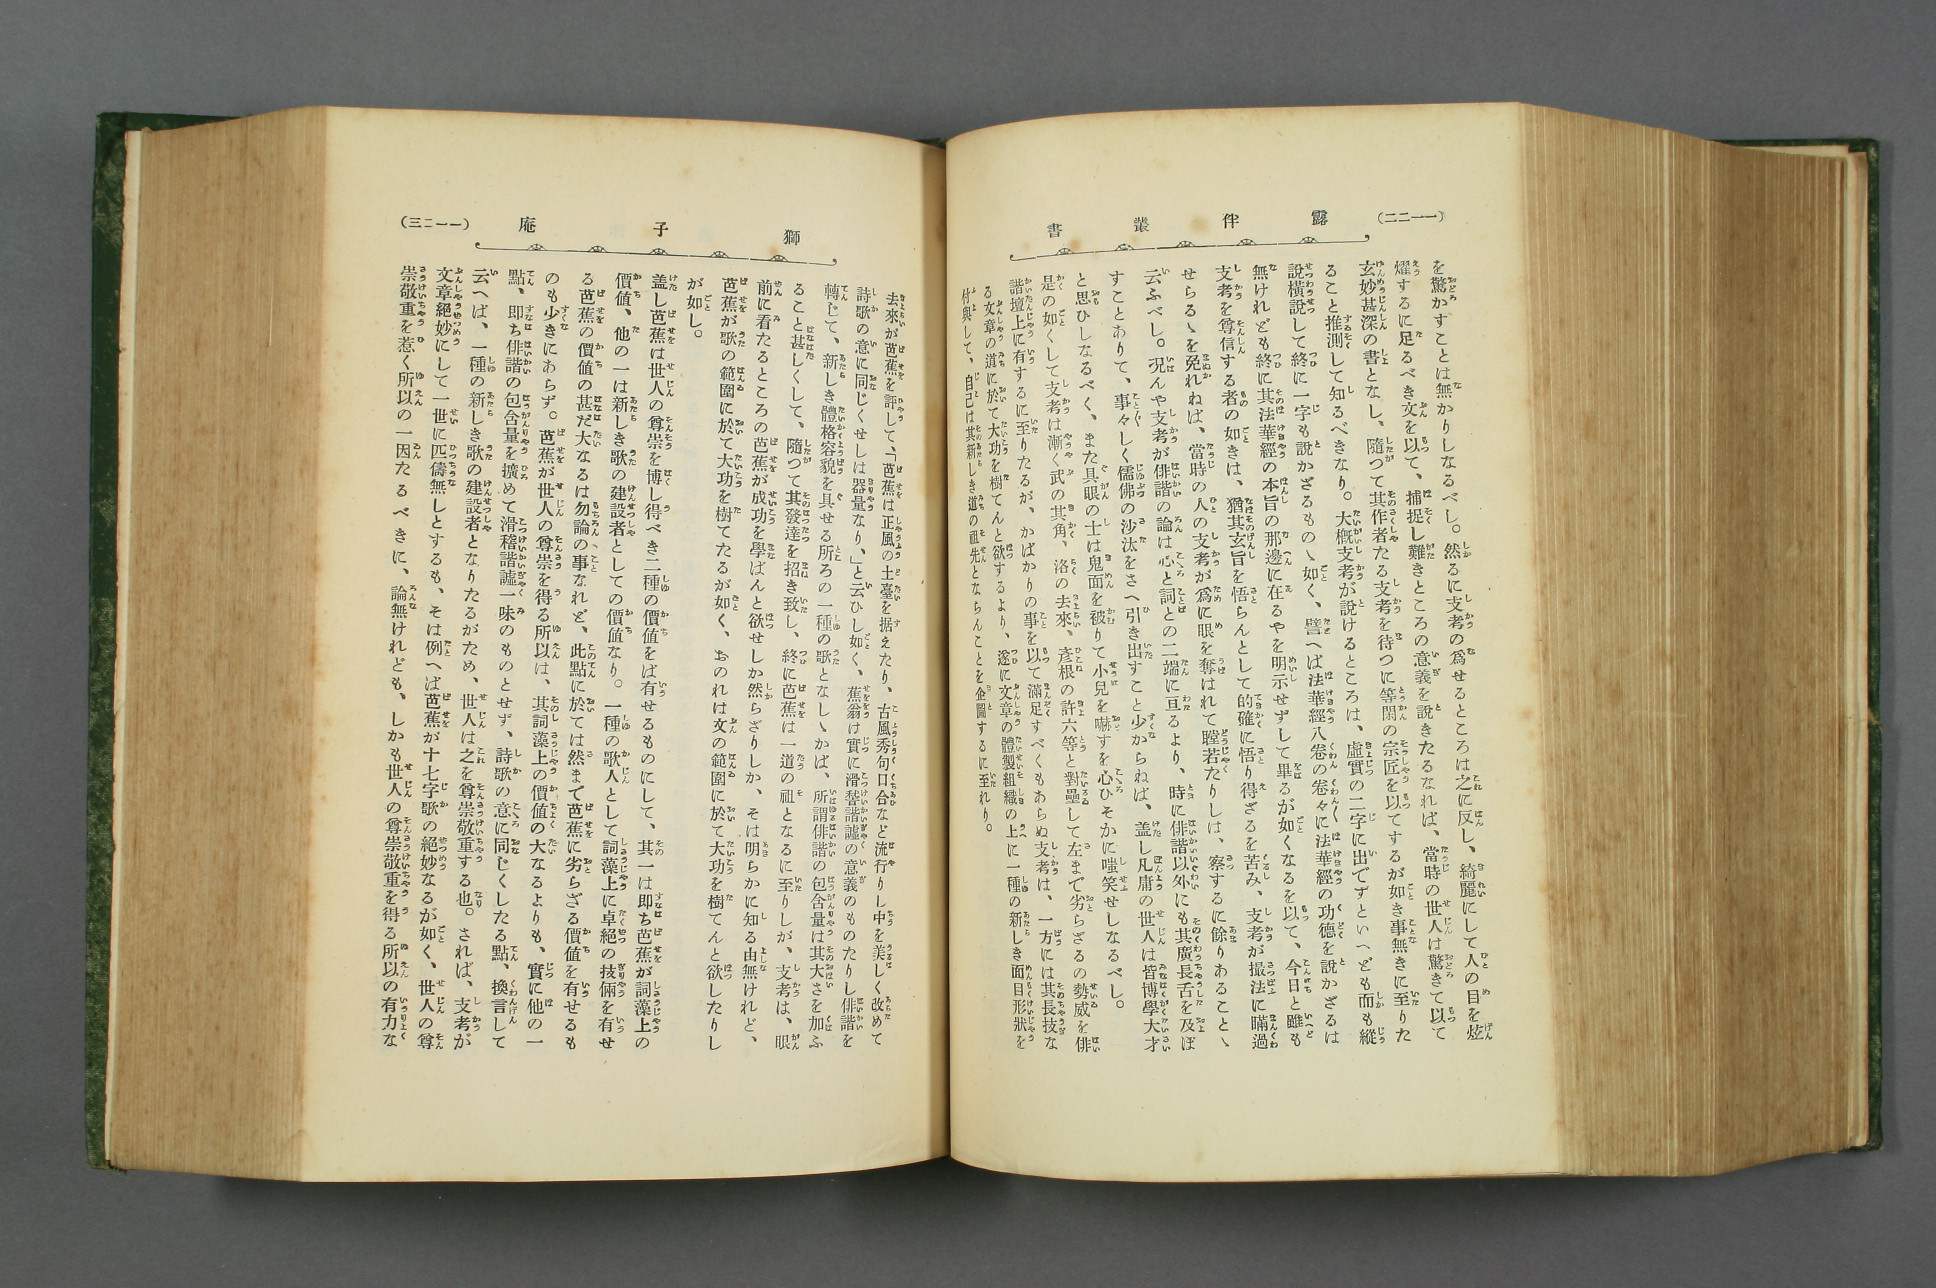 (一一二二)
露伴叢書
を驚かすことは無かりしなるべし。然るに支考の爲せるところは之に反し、綺麗にして人の目を炫
燿するに足るべき文を以て、捕捉し難きところの意義を說きたるなれば、當時の世人は驚きて以て
玄妙甚深の書となし、隨つて其作者たる支考を待つに等閑の宗匠を以てするが如き事無きに至りた
ること推測して知るべきなり。大槪支考が說けるところは、虛實の二字に出でずといへども而も縱
說橫說して終に一字も說かざるもの丶如く、譬へば法華經八卷の卷々に法華經の功德を說かざるは
無けれども終に其法華經の本旨の那邊に在るやを明示せずして畢るが如くなるを以て、今日と雖も
支考を尊信する者の如きは、猶其玄旨を悟らんとして的確に悟り得ざるを苦み、支考が撮法に瞞過
せらるヽを免れねば、當時の人の支考が爲に眼を奪はれて瞠若たりしは、察するに餘りあることヽ
云ふべし。況んや支考が俳諧の論は心と詞との二端に亘るより、時に俳諧以外にも其廣長舌を及ぼ
すことありて、事々しく儒佛の沙汰をさへ引き出すこと少からねば、盖し凡庸の世人は皆博學大才
と思ひしなるべく、また具眼の士は鬼面を被りて小兒を嚇すを心ひそかに嗤笑せしなるべし。
是の如くして支考は漸く武の其角、洛の去來、彦根の許六等と對壘して左まで劣らざるの勢威を俳
諧壇上に有するに至りたるが、かばかりの事を以て滿足すべくもあらぬ支考は、一方には其長技な
る文章の道に於て大功を樹てんと欲するより、遂に文章の體製組織の上に一種の新しき面目形狀を
付與して、自己は其新しき道の祖先とならんことを企圖するに至れり。
獅子庵
(一一二三)
去來が芭蕉を評して、「芭蕉は正風の土臺を据えたり、古風秀句口合など流行りし中を美しく改めて
詩歌の意に同じくせしは器量なり、」と云ひし如く、蕉翁は實に滑稽諧謔の意義のものたりし俳諧を
轉じて、新しき體格容貌を具せる所ろの一種の歌となしヽかば、所謂俳諧の包含量は其大さを加ふ
ること甚しくして、隨つて其發達を招き致し、終に芭蕉は一道の祖となるに至りしが、支考は、眼
前に看たるところの芭蕉が成功を學ばんと欲せしか然らざりしか、そは明らかに知る由無けれど、
芭蕉が歌の範圍に於て大功を樹てたるが如く、おのれは文の範圍に於て大功を樹てんと欲したりし
が如し。
盖し芭蕉は世人の尊崇を博し得べき二種の價値をば有せるものにして、其一は即ち芭蕉が詞藻上の
價値、他の一は新しき歌の建設者としての價値なり。一種の歌人として詞藻上に卓絕の技倆を有せ
る芭蕉の價値の甚だ大なるは勿論の事なれど、此點に於ては然まで芭蕉に劣らざる價値を有せるも
のも少きにあらず。芭蕉が世人の尊崇を得る所以は、其詞藻上の價値の大なるよりも、實に他の一
點、即ち俳諧の包含量を擴めて滑稽諧謔一味のものとせず、詩歌の意に同じくしたる點、換言して
云へば、一種の新しき歌の建設者となりたるがため、世人は之を尊崇敬重する也。されば、支考が
文章絕妙にして一世に匹儔無しとするも、そは例へば芭蕉が十七字歌の絕妙なるが如く、世人の尊
崇敬重を惹く所以の一因たるべきに、論無けれども、しかも世人の尊崇敬重を得る所以の有力な